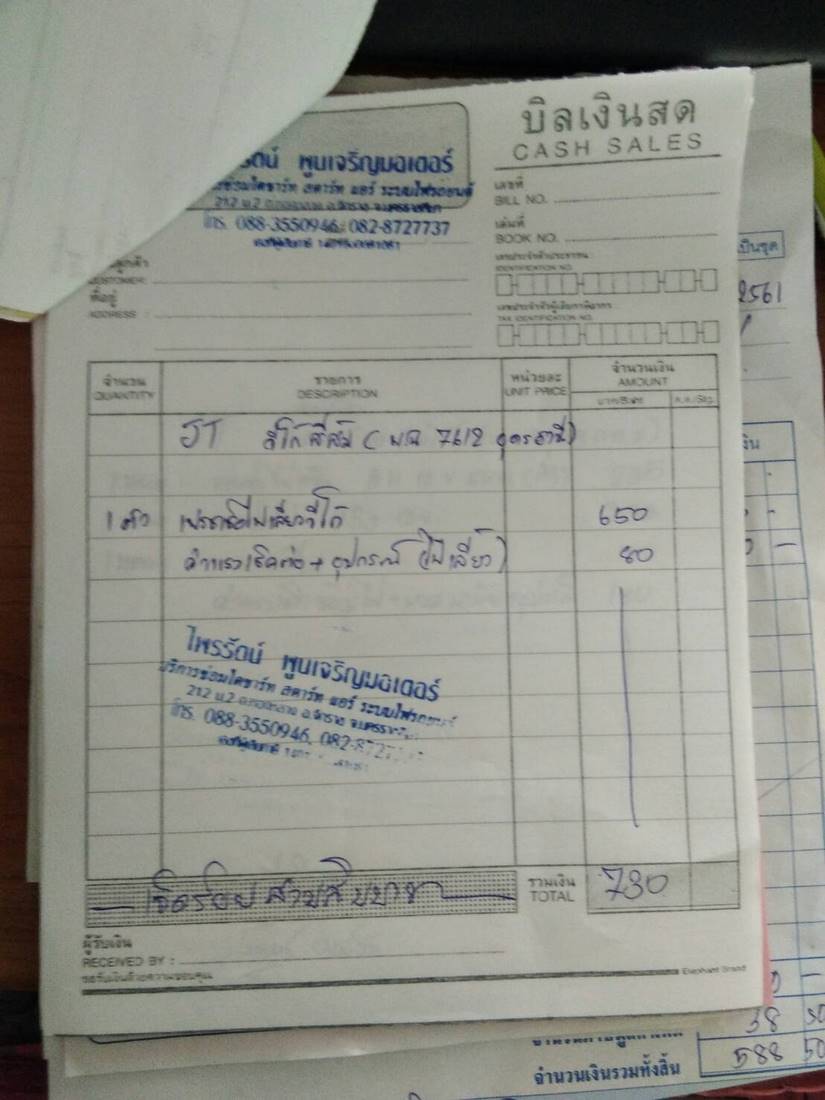 บิลเงินสด
CASH SALES
พูนเจริญมอเตอร์
ไดชาร์ท สตาร์ท แอร์ ระบบไฟรถยนต์
212 ม.2
โทร. 088-3550946, 082-8727737
เลขที่
BILL NO.
เล่มที่
BOOK NO.
เลขประจำตัวประชาชน
IDENTIFICATION NO.
เลขประจำตัวผู้เสียภาษีอากร
TAX IDENTIFICATION NO.
CUSTOMER:
ที่อยู่
ADDRESS :
เป็นชุด
2561
จำนวน
QUANTITY
รายการ
DESCRIPTION
หน่วยละ
UNIT PRICE
จำนวนเงิน
AMOUNT
บาท/Baht
ส.ต./Stg.
JT สีส้ม ( 7612 อุดรธานี)
1 ตัว 650
ค่าแรงเช็คต่อ + อุปกรณ์ (ไฟเลี้ยว) 80
ไพรรัตน์ พูนเจริญมอเตอร์
บริการซ่อมไดชาร์ท สตาร์ท แอร์ ระบบไฟรถยนต์
212 ม.2
โทร. 088-3550946, 082-8727
เจ็ดร้อยสามสิบบาท
รวมเงิน
TOTAL
730
ผู้รับเงิน
RECEIVED BY :
ขอรับเงินด้วยความขอบคุณ
Elephant Brand
38 50
จำนวนเงินรวมทั้งสิ้น 588 50